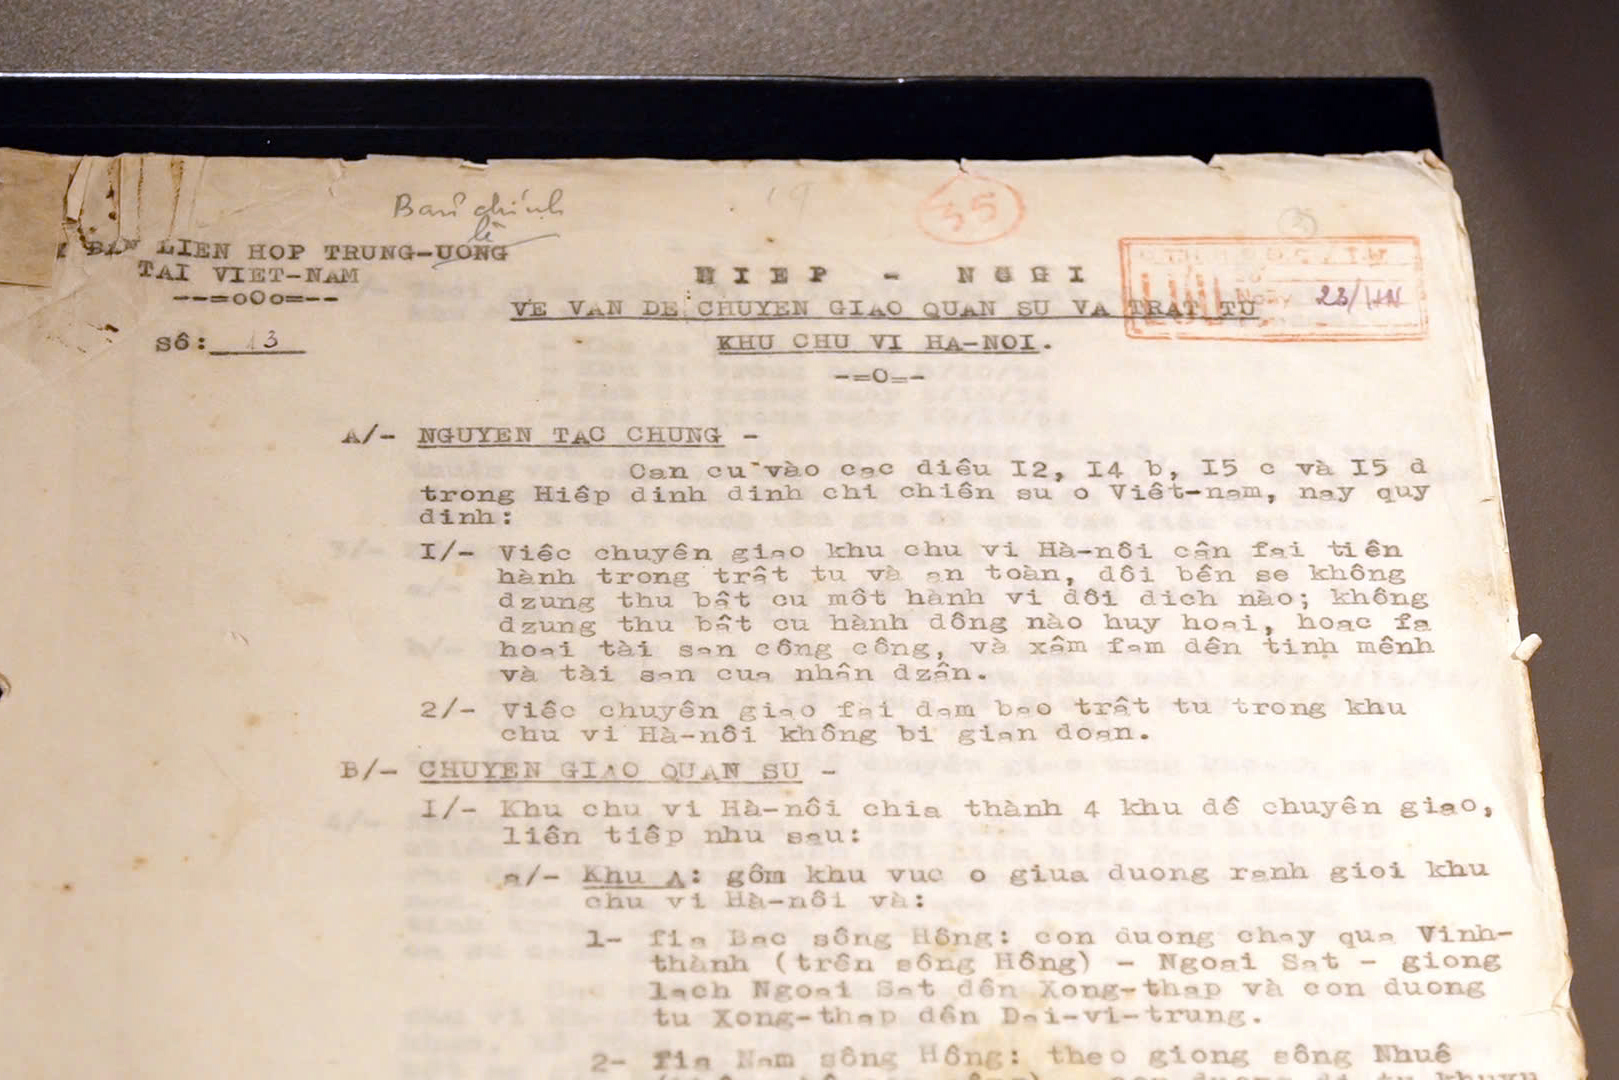 Ban chính
BAN LIEN HOP TRUNG-UONG
TAI VIET-NAM
--=oOo=--
số: 13
35
HIEP - NGGI
VE VAN DE CHUYEN GIAO QUAN SU VA TRAT TU
KHU CHU VI HA-NOI.
-=O=-
23/HN
A/- NGUYEN TAC CHUNG -
Can cu vào cac diêu I2, I4 b, I5 c và I5 d
trong Hiêp dinh dinh chi chiên su o Viêt-nam, nay quy
dinh:
I/- Viêc chuyên giao khu chu vi Hà-nôi cân fai tiên
hành trong trât tu và an toàn, dôi bên se không
dzung thu bât cu môt hành vi dôi dich nào; không
dzung thu bât cu hành dông nào huy hoai, hoac fa
hoai tài san công công, và xâm fam dên tinh mênh
và tài san cua nhân dzân.
2/- Viêc chuyên giao fai dam bao trât tu trong khu
chu vi Hà-nôi không bi gian doan.
B/- CHUYEN GIAO QUAN SU -
I/- Khu chu vi Hà-nôi chia thành 4 khu dê chuyên giao,
liên tiêp nhu sau:
a/- Khu A: gôm khu vuc o giua duong ranh gioi khu
chu vi Hà-nôi và:
1- fia Bac sông Hông: con duong chay qua Vinh-
thành (trên sông Hông) - Ngoai Sat - giong
lach Ngoai Sat dên Xong-thap và con duong
tu Xong-thap dên Dai-vi-trung.
2- fia Nam sông Hông: theo giong sông Nhuê